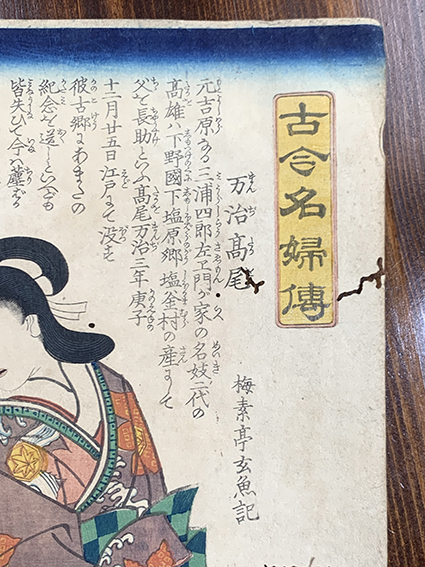 古今名婦傳
梅素亭玄魚記
万治髙尾
元吉原なる三浦四郎左エ門が家の名妓二代の
髙雄ハ下野國下塩原郷塩釜村の産にて
父を長助といふ髙尾万治三年庚子
十二月廿五日江戸にて没す
彼古郷にあまたの
紀念を送りしといへども
皆失ひて今ハ塵ば